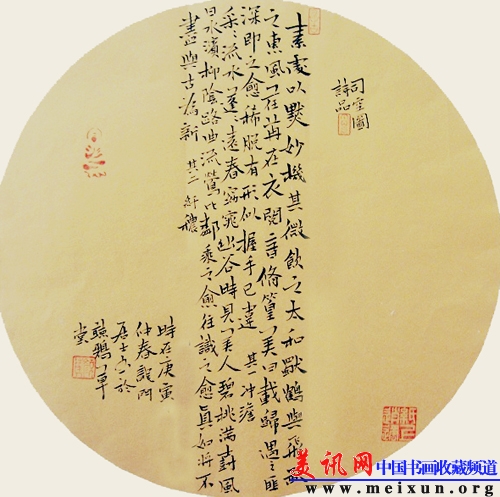 司空圖
詩品
素處以默妙機其微飲之太和獨鶴與飛猶
之惠風荏苒在衣閱音脩篁美曰載歸遇之匪
深即之愈稀脫有形似握手已違 其一冲澹
采々流水蓬々遠春窈窕幽谷時見美人碧桃滿樹風
日水濱柳陰路曲流鶯比鄰乘之愈往識之愈真如將不
盡與古為新 其二纖穠
時在庚寅
仲春 門
居士 於
草
堂
美讯网 中国书画收藏频道
www.meixun.org